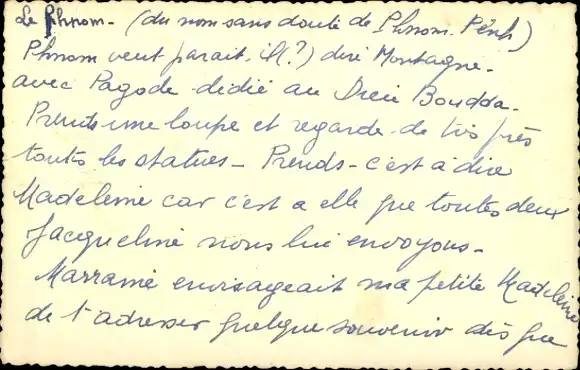 Le Phnom - (du nom sans doute de Phnom. Pênh)
Phnom veut parait. il (?) dire Montagne -
avec Pagode dédié au Dieu Boudda -
Prends une loupe et regarde de très près
toutes les statues - Prends - c'est à dire
Madeleine car c'est a elle que toutes deux
Jacqueline nous lui envoyons -
Marraine envisageait ma petite Madeleine
de t'adresser quelque souvenir dès que